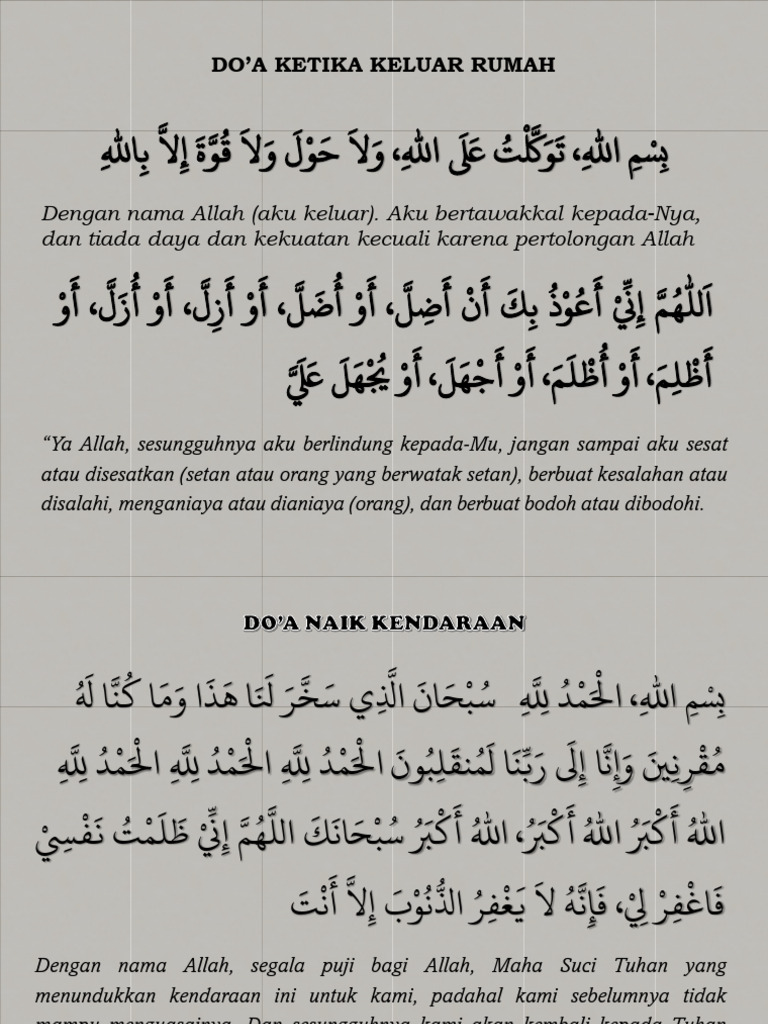 DO’A KETIKA KELUAR RUMAH
بِسْمِ اللهِ، تَوَكَّلْتُ عَلَى اللهِ، وَلاَ حَوْلَ وَلاَ قُوَّةَ إِلاَّ بِاللهِ
Dengan nama Allah (aku keluar). Aku bertawakkal kepada-Nya,
dan tiada daya dan kekuatan kecuali karena pertolongan Allah
اَللّٰهُمَّ إِنِّيْ أَعُوْذُ بِكَ أَنْ أَضِلَّ، أَوْ أُضَلَّ، أَوْ أَزِلَّ، أَوْ أُزَلَّ، أَوْ
أَظْلِمَ، أَوْ أُظْلَمَ، أَوْ أَجْهَلَ، أَوْ يُجْهَلَ عَلَيَّ
“Ya Allah, sesungguhnya aku berlindung kepada-Mu, jangan sampai aku sesat
atau disesatkan (setan atau orang yang berwatak setan), berbuat kesalahan atau
disalahi, menganiaya atau dianiaya (orang), dan berbuat bodoh atau dibodohi.
DO’A NAIK KENDARAAN
بِسْمِ اللهِ، الْحَمْدُ لِلَّهِ سُبْحَانَ الَّذِي سَخَّرَ لَنَا هَذَا وَمَا كُنَّا لَهُ
مُقْرِنِينَ وَإِنَّا إِلَى رَبِّنَا لَمُنقَلِبُونَ الْحَمْدُ لِلَّهِ الْحَمْدُ لِلَّهِ الْحَمْدُ لِلَّهِ
اللهُ أَكْبَرُ اللهُ أَكْبَرُ، اللهُ أَكْبَرُ سُبْحَانَكَ اللَّهُمَّ إِنِّيْ ظَلَمْتُ نَفْسِيْ
فَاغْفِرْ لِيْ، فَإِنَّهُ لاَ يَغْفِرُ الذُّنُوْبَ إِلاَّ أَنْتَ
Dengan nama Allah, segala puji bagi Allah, Maha Suci Tuhan yang
menundukkan kendaraan ini untuk kami, padahal kami sebelumnya tidak
mampu menguasainya. Dan sesungguhnya kami akan kembali kepada Tuhan